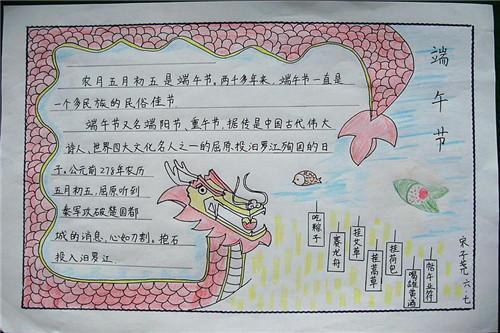 农月五月初五是端午节。两千多年来，端午节一直是
一个多民族的民俗佳节。
端午节又名端阳节、重午节，据传是中国古代伟大
诗人、世界四大文化名人之一的屈原投汨罗江殉国的日
子。公元前278年农历
五月初五，屈原听到
秦军攻破楚国都
城的消息，心如刀割。抱石
投入汨罗江。
端午节
吃粽子
赛龙舟
挂艾草
挂菖蒲
挂荷包
喝雄黄酒
六.七